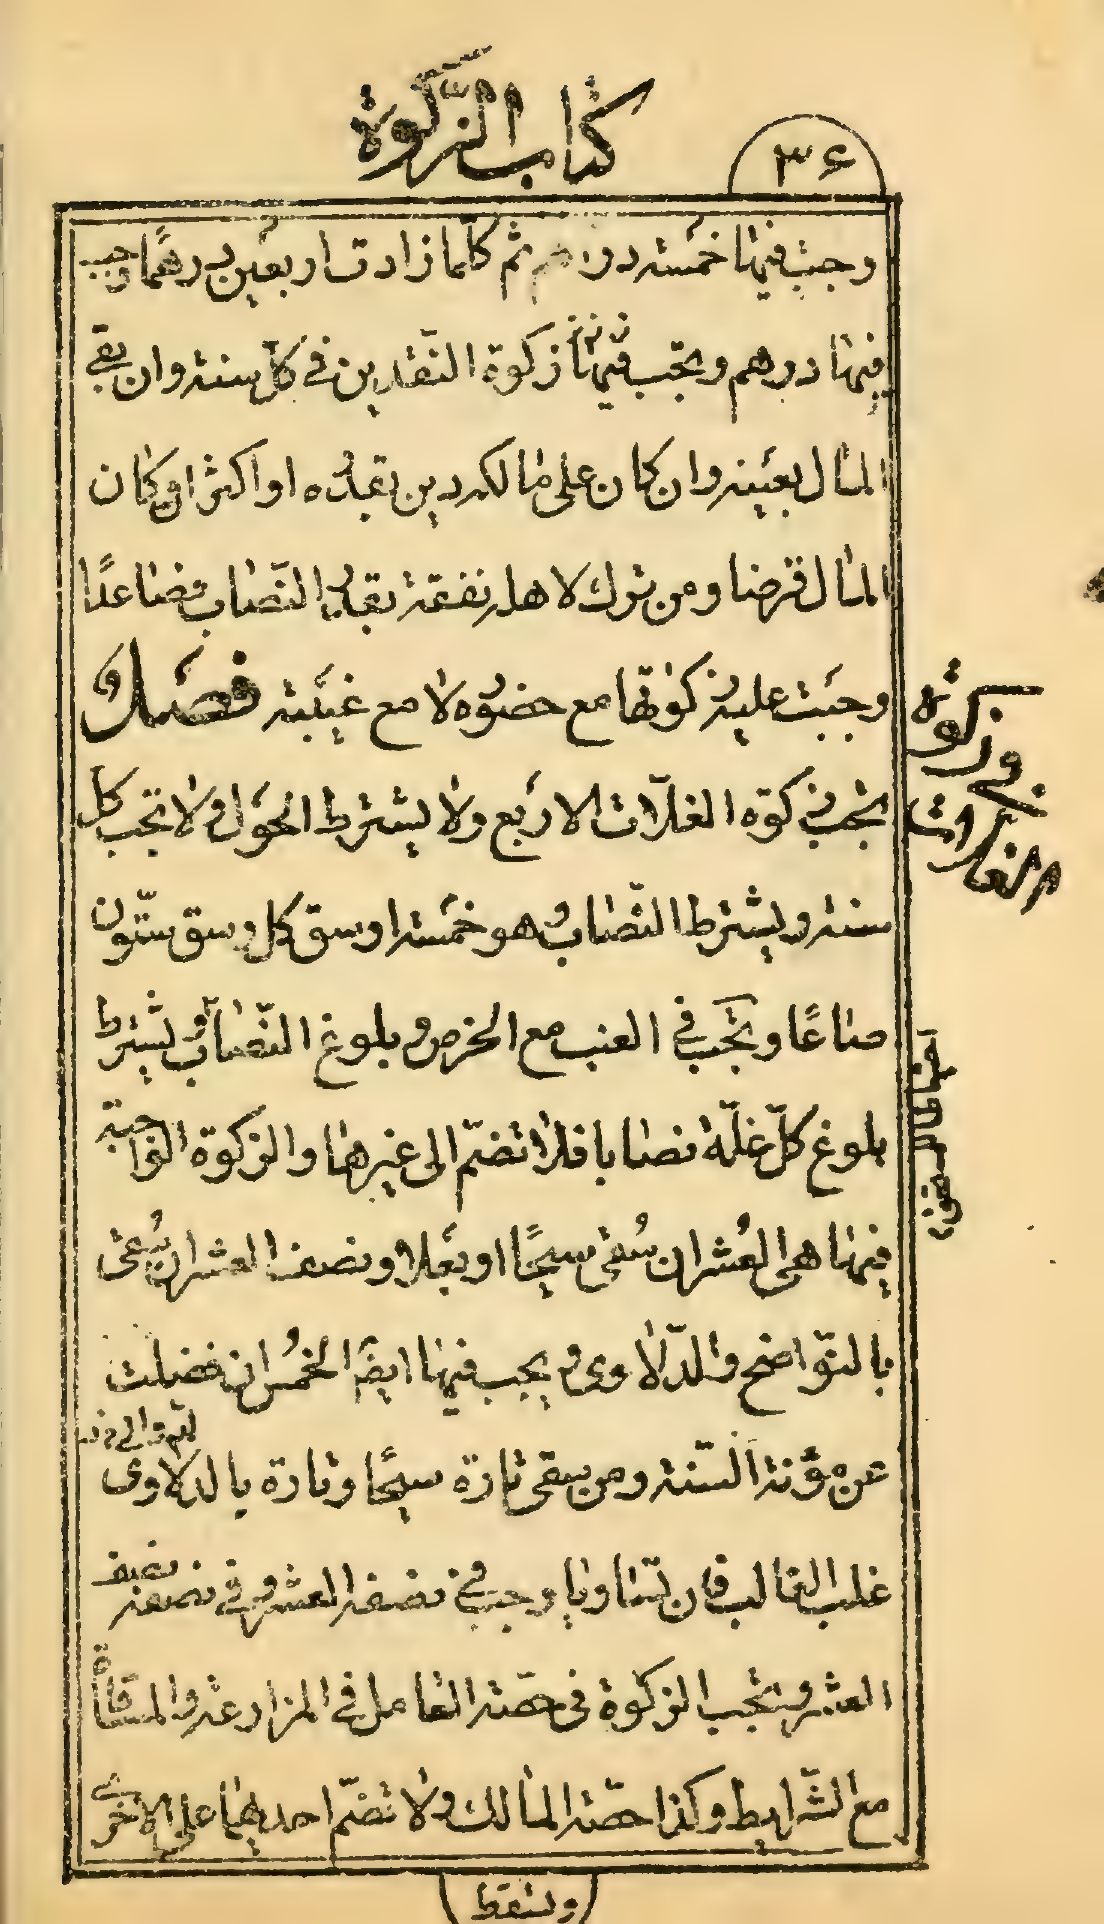 كتاب الزكوة
٣۶
وجبت فيها خمسة دراهم ثم كلما زادت اربعين درهمًا وجب
فيها درهم وتجب فيهما زكوة النقدين فى كل سنة وان بقى
المال بعينه وان كان على مالكه دين بقدره او اكثر او كان
المال قرضا ومن ترك لاهله نفقة بقدر النصاب فصاعدًا
وجبت عليه زكوتها مع حضوره لا مع غيبته فصل و
تجب زكوة الغلّات الاربع ولا يشترط الحول و لا تجب كل
سنة ويشترط النّصاب وهو خمسة اوسق كل وسق ستّون
صاعًا وتجب فى العنب مع الخرص و بلوغ النّصاب ويشترط
بلوغ كلّ غلّة نصابا فلا تضمّ الى غيرها والزكوة الواجبة
فيها هى العُشر ان سُقى سيحًا او بعلا ونصف العشر ان سُقى
بالنّواضح والدّلاء وى و يجب فيها ايضًا الخمُس ان فضلت
عن مؤنة السّنة ومن سقى تارة سيحًا وتارة بالدلاء وى
غلب الغالب فان تساويا وجب فى نصفه العشر وفى نصفه نصف
العشر وتجب الزكوة فى حصّة العامل فى المزارعة والمساقاة
مع الشّرايط وكذا حصّة المالك ولا تضمّ احديهما على الاخرى
وتسقط
فى زكوة
الغلات